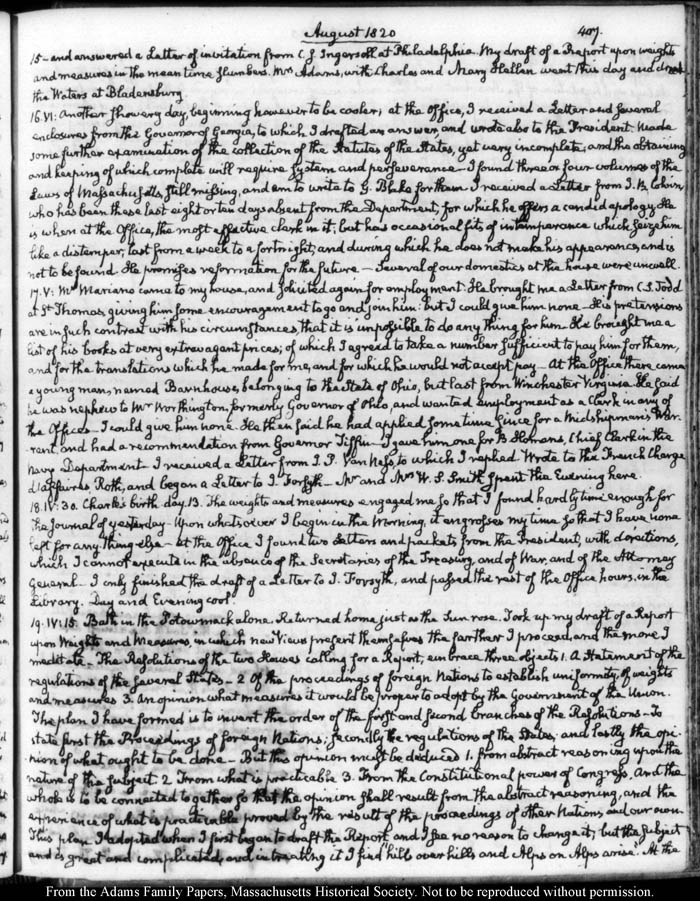 August 1820
407.
15 - and answered a Letter of invitation from C. J. Ingersoll at Philadelphia. My draft of a Report upon weights
and measures in the mean time slumbers. Mrs Adams, with Charles and Mary Hellen went this day and drank
the Waters at Bladensburg.
16. VI: Another showery day, beginning however to be cooler; at the Office, I received a Letter and several
enclosures from the Governor of Georgia, to which I drafted an answer, and wrote also to the President. Made
some further examination of the collection of the Statutes of the States, yet very incomplete, and the obtaining
and keeping of which complete will require system and perseverance. I found three or four volumes of the
Laws of Massachusetts, still missing, and am to write to G. Blake for them. I received a Letter from J. B. Colvin,
who has been these last eight or ten days absent from the Department, for which he offers a candid apology. He
is when at the Office, the most effective clerk in it; but has occasional fits, of intemperance which seize him
like a distemper, last from a week to a fortnight, and during which he does not make his appearance, and is
not to be found. He promises reformation for the future - Several of our domestics at the house were unwell.
17. V: Mr Mariano came to my house, and solicited again for employment. He brought me a Letter from C. S. Todd
at St Thomas, giving him some encouragement to go and join him: but I could give him none - His pretensions
are in such contrast with his circumstances, that it is impossible to do any thing for him. He brought me a
list of his books at very extravagant prices; of which I agreed to take a number sufficient to pay him for them,
and for the translations which he made for me, and for which he would not accept pay - At the Office there came
a young man, named Barnhouse, belonging to the State of Ohio, but last from Winchester Virginia. He said
he was nephew to Mr Worthington, formerly Governor of Ohio, and wanted employment as a Clerk in any of
the Offices - I could give him none. He then said he had applied some time since for a Midshipman's War-
rent, and had a recommendation from Governor Tiffin - I gave him one for B. Homans, Chief Clerk in the
Navy Department - I received a Letter from J. P. Van Ness, to which I replied. Wrote to the French Chargé
d'Affaires Roth, and began a Letter to J. Forsyth - Mr and Mrs W. S. Smith spent the Evening here.
18. IV: 30. Charles's birth day. 13. The weights and measures engaged me so that I found hardly time enough for
the Journal of yesterday - Upon whatsoever I begin in the Morning, it engrosses my time so that I have none
left for any thing else - At the Office I found two Letters and packets from the President, with directions,
which I cannot execute in the absence of the Secretaries of the Treasury, and of War, and of the Attorney
General - I only finished the draft of a Letter to J. Forsyth, and passed the rest of the Office hours, in the
Library. Day and Evening cool.
19. IV: 15. Bath in the Potowmack alone. Returned home just as the Sun rose. Took up my draft of a Report
upon Weights and Measures, in which new Views present themselves the farther I proceed, and the more I
meditate - The Resolutions of the two Houses calling for a Report, embrace three objects 1. A Statement of the
regulations of the several States - 2 Of the proceedings of foreign Nations to establish uniformity of weights
and measures 3. An opinion what measures it would be proper to adopt by the Government of the Union.
The plan I have formed is to invert the order of the first and second branches of the Resolutions - To
state first the Proceedings of foreign Nations; secondly the regulations of the States, and lastly the opi-
nion of what ought to be done - But this opinion must be deduced 1. from abstract reasoning upon the
nature of the subject 2 From what is practicable 3. From the Constitutional power of Congress. And the
whole is to be connected together so that the opinion shall result from the abstract reasoning, and the
experience of what is practicable proved by the result of the proceedings of other Nations and our own.
This plan I adopted when I first began to draft the Report and I see no reason to change it; but the subject
is great and complicated, and in treating it I find "hills over hills and Alps on Alps arise." At the
From the Adams Family Papers, Massachusetts Historical Society. Not to be reproduced without permission.